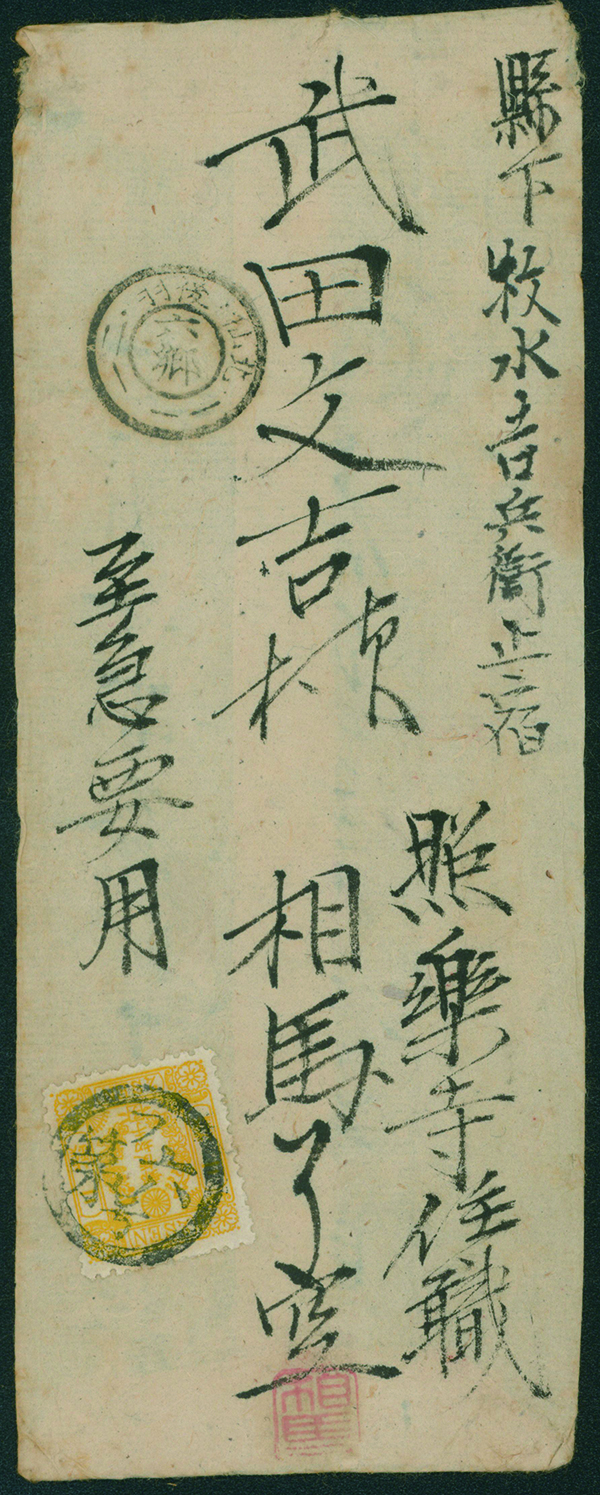 縣下牧水吉兵衛止宿
武田文吉様
照樂寺住職
相馬了空
至急要用
羽後
六郷
SEN
相馬